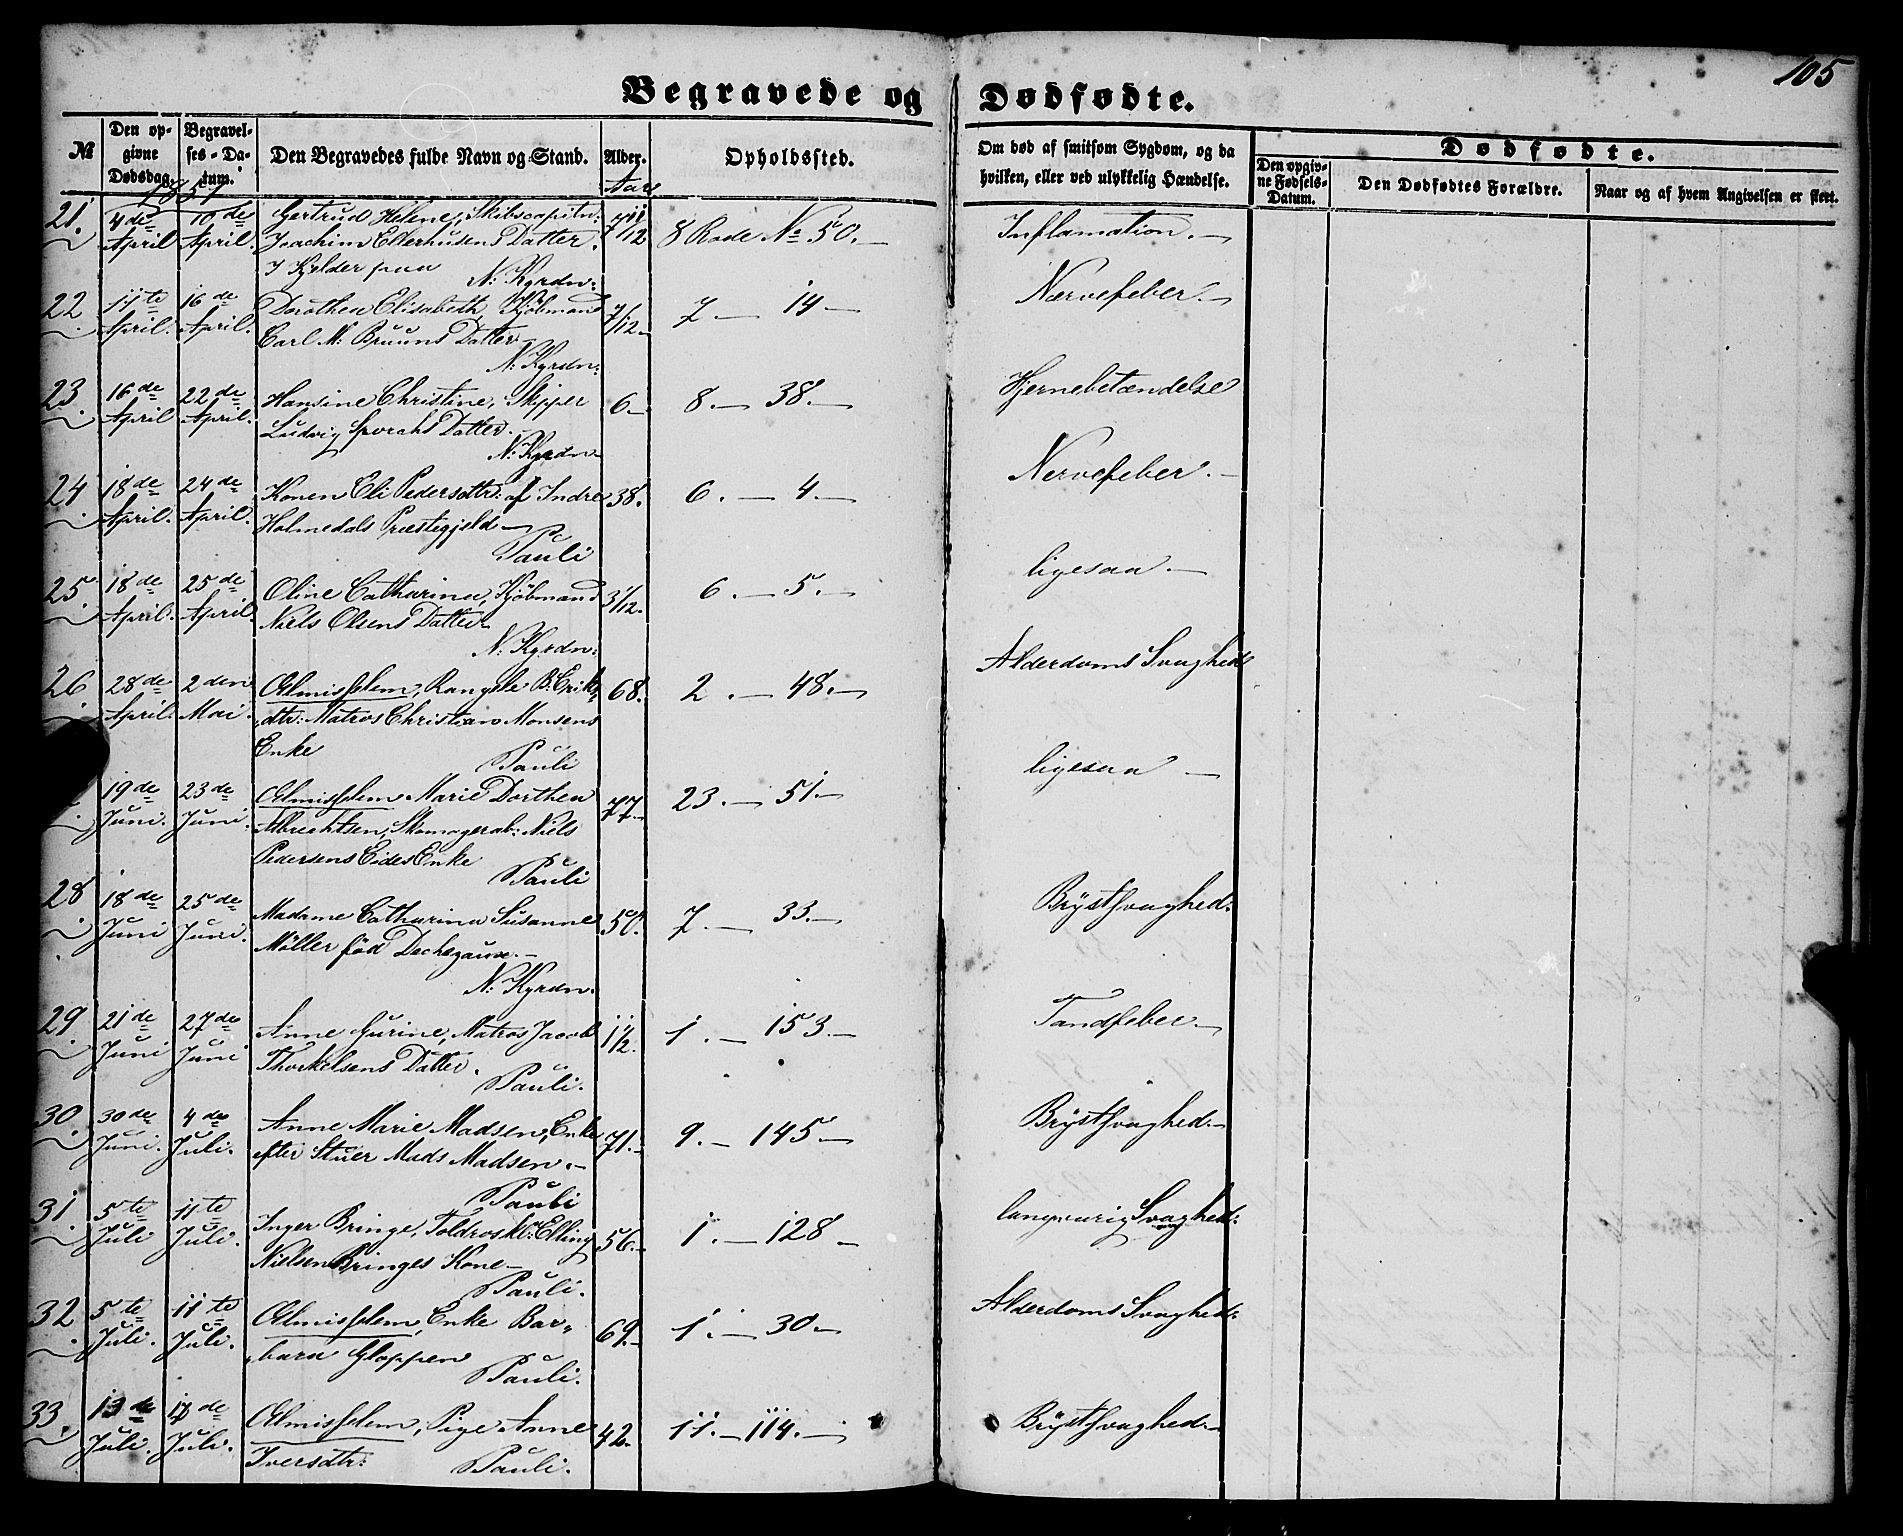 105
Begravede og Dødfødte.
№
Den opgivne Dødsdag.
Begravelses-Datum.
Den Begravedes fulde Navn og Stand.
Alder.
Opholdssted.
Om død af smitsom Sygdom, og da hvilken, eller ved ulykkelig Hændelse.
Dødfødte.
Den opgivne Fødsels-Datum.
Den Dødfødtes Forældre.
Naar og af hvem Angivelsen er skeet.
1857
Aar
21. 4de April 10de April. Gertrud Helene, Skibscapitn: 7/12 8 Rode No 50. Inflamation.
Joachim Ellerhusens Datter.
I Kjelder paa N: Kyrdn:
22 11te April. 16de April. Dorothea Elisabeth, Kjøbmand 7/12 7. 14 Nervefeber.
Carl M: Bruuns Datter
N: Kyrdn:
23 16de April 22de April. Hansine Christine, Skipper 6. 8. 38. Hjernebetændelse
Ludvig Datter.
N: Kyrdn
24 18de April. 24de April. Konen Eli Pedersdtr: af Indre 38. 6. 4. Nervefeber.
Holmedals Præstegjeld
Pauli
25. 18de April. 25de April. Oline Catharina, Kjøbmand 3/12. 6. 5. ligesaa.
Niels Olsens Datter
N: Kyrdn:
26 28de April. 2den Mai. Almisselem, B. Eriks= 68. 2. 48. Alderdoms Svaghed
dtr: Matros Christian Monsens
Enke Pauli
19de Juni. 23de Juni. Almisselem Marie Dorthea 77. 23. 51. ligesaa
Albrechtsen, Skomagerab: Niels
Pedersens Eides Enke
Pauli
28 18de Juni 25de Juni. Madame Catharina Susanne 50. 7. 33. Brystsvaghed.
Møller fød
N: Kyrdn.
29. 21de Juni 27de Juni Anne Gurine, Matros Jacob 1 1/2. 1. 153. Tandfeber.
Thorkelsens Datter.
Pauli.
30. 30de Juni. 4de Juli. Anne Marie Madsen, Enke 71. 9. 145. Brystsvaghed.
efter Stuer Mads Madsen.
Pauli
31. 5te Juli 11te Juli. Inger Bringe, Toldrosk: Elling 56. 1. 128 langvarig Svaghed.
Nielsen Bringes Kone
Pauli.
32 5te Juli. 11te Juli. Almisselem, Enke Bar= 69. 1. 30. Alderdoms Svaghed.
bara Gloppen
Pauli.
33. 13de Juli. 17de Juli. Almisselem, Pige Anne 42. 11. 114. Brystsvaghed.
Iversdtr:
Pauli.